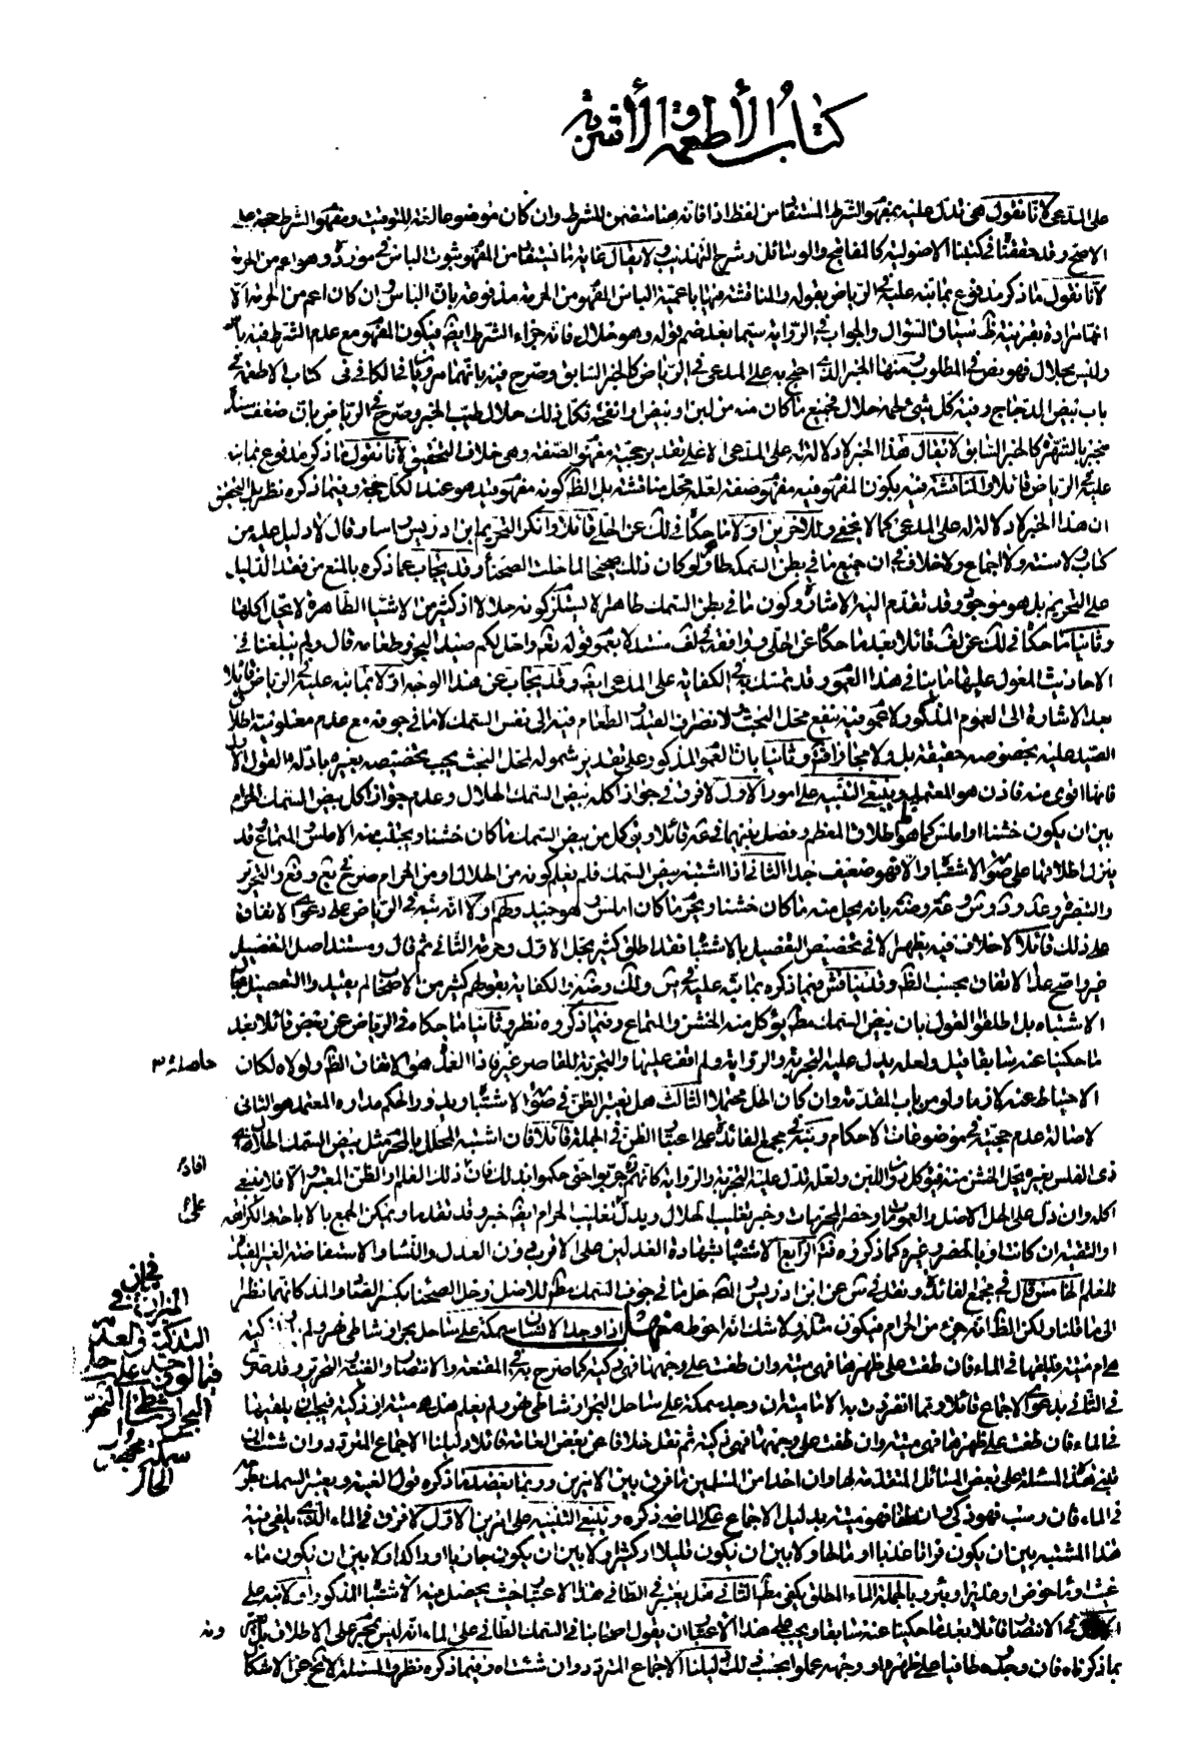 كتاب الأطعمة والأشربة
على المدعى لانا نقول هى تدل عليه بمفهوم الشرط المستفاد من لفظ اذا فانه هنا متضمن للشرط وان كان موضوعا لغة للتوقيت ومفهوم الشرط حجة على
الاصح وقد حققنا فى كتبنا الاصولية كالمفاتيح والوسائل وشرح التهذيب لا يقال غاية ما يستفاد من المفهوم ثبوت الباس فى مورده وهو اعم من الحرمة
لانا نقول ما ذكر مدفوع بما نبه عليه فى الرياض بقوله والمناقشة فيها باعمية الباس المفهوم من الحرمة مدفوعة بان الباس وان كان اعم من الحرمة الا
انها مرادة بقرينة سياق السؤال والجواب فى الرواية سيما بعد ضم قوله وهو حلال فانه جزاء الشرط ايضا فيكون المفهوم مع عدم الشرط فيه باس
وليس بحلال فهو نص فى المطلوب ومنها الخبر الذى احتج به على المدعى فى الرياض كالخبر السابق وصرح فيه بانهما مرويان فى الكافى فى كتاب الاطعمة فى
باب بيض الدجاج وفيه كل شئ لحمه حلال فجميع ما كان منه من لبن او بيض او انفحة فكل ذلك حلال طيب الخبر وصرح فى الرياض بان ضعف سنده
منجبر بالشهرة كالخبر السابق لا يقال هذا الخبر لا دلالة له على المدعى الا على تقدير حجية مفهوم الصفة وهى خلاف التحقيق لانا نقول ما ذكر مدفوع بما نبه
عليه فى الرياض قائلا والمناقشة فيه بكون المفهوم فيه مفهوم صفة لعله محل مناقشة بل الظاهر كونه مفهوم قيد هو عند الكل حجة وفيما ذكره نظر بل التحقيق
ان هذا الخبر لا دلالة له على المدعى كما لا يخفى وللاخرين اولا ما حكاه فى لك عن الحلى قائلا وانكر التحريم ابن ادريس اساسا وقال لا دليل عليه من
كتاب ولا سنة ولا اجماع ولا خلاف فى ان جميع ما فى بطن السمك طاهر ولو كان ذلك صحيحا لما حلت الصحناة وقد يجاب عما ذكره بالمنع من فقد الدليل
على التحريم بل هو موجود وقد تقدم اليه الاشارة وكون ما فى بطن السمك طاهرا لا يستلزم كونه حلالا اذ كثير من الاشياء الطاهرة لا يحل اكلها
وثانيا ما حكاه فى لك عن لف قائلا بعد ما حكاه عن الحلى ووافقه فى لف مستدلا بعموم قوله تعالى واحل لكم صيد البحر وطعامه قال ولم يبلغنا فى
الاحاديث المعول عليها ما ينافى هذا العموم وقد تمسك به فى الكفاية على المدعى ايضا وقد يجاب عن هذا الوجه اولا بما نبه عليه فى الرياض قائلا
بعد الاشارة الى العموم المذكور لا عموم فيه ينفع محل البحث لانصراف الصيد والطعام فيه الى نفس السمك لا ما فى جوفه مع عدم معلومية اطلاق
الصيد عليه بخصوصه حقيقة بل ولا مجازا فتامل وثانيا بان العموم المذكور على تقدير شموله لمحل البحث يجب تخصيصه بغيره بادلة القول الاول
فانها اقوى منه فاذن هو المعتمد وينبغى التنبيه على امور الاول لا فرق فى جواز اكله بيض السمك الحلال وعدم جواز اكل بيض السمك الحرام
بين ان يكون خشنا او املس كما هو اطلاق المعظم وفصل بينهما فى عه قائلا ويؤكل من بيض السمك ما كان خشنا ويجتنب منه الاملس المتماع وقد
ينزل اطلاقها على صورة الاشتباه والا فهو ضعيف جدا الثانى اذا اشتبه بيض السمك فلم يعلم كونه من الحلال او من الحرام صرح فى يع وفع والتحرير
والتبصرة وعد ود وس وعه وضه بانه يحل منه ما كان خشنا ويحرم ما كان املس وهو جيد ولهم اولا انه نبه فى الرياض على دعوى الاتفاق
على ذلك قائلا لا خلاف فيه يظهر الا فى تخصيص التفصيل بالاشتباه فقد اطلق كثير بحل الاول وحرمة الثانى ثم قال ومستند اصل التفصيل
غير واضح عدا الاتفاق بحسب الظاهر وقد يناقش فيما ذكره بما نبه عليه فى ولك وضه والكفاية بقولهم كثير من الاصحاب لم يقيد والتفصيل بحال
الاشتباه بل اطلقوا القول بان بيض السمك مطلقا يؤكل منه الخشن والمتماع وفيما ذكروه نظر وثانيا ما حكاه فى الرياض عن بعض قائلا بعد
ما حكينا عنه سابقا قيل ولعله يدل عليه التجربة والرواية ولم اقف عليها والتجربة للقاصر غير فاذا العمدة هو الاتفاق الظاهر ولولاه لكان
الاحتياط عنه لازما ولو من باب المقدمة وان كان الحل محتملا الثالث هل يعتبر الظن فى صورة الاشتباه ويدور الحكم مداره المعتمد هو الثانى
لاصالة عدم حجيته فى موضوعات الاحكام ونبه فى مجمع الفائدة على اعتبار الظن فى الجملة قائلا فان اشتبه المحلل بالمحرم مثل بيض السمك الحلال
ذى الفلس بغيره يحل الخشن منه فيؤكل دون اللين ولعله تدل عليه التجربة والرواية كانهم جربوا حتى حكموا بذلك فان ذلك العلم او الظن المعتبر والا فلا ينبغى
اكله وان دل على الحل الاصل والعمومات وحصر المحرمات وخبر تغليب الحلال ويدل تغليب الحرام ايضا خبر وقد تقدما ويمكن الجمع بالاباحة والكراهة
او التقية ان كانت او بالحصر وغيره كما ذكروه فتم الرابع لا اشتباه بشهادة العدلين على الاقرب وفى العدل والنساء والاستفاضة الغير المفيدة
للعلم الخامس قال فى مجمع الفائدة ونقل فى س عن ابن ادريس حل ما فى جوف السمك مطلقا للاصل وحل الصحنا بكسر الصاد والمد كانهما نظرا
الى ما قلنا ولكن الظاهر انه جزء من الحرام فيكون مثله ولا شك انه احوط منهل اذا وجد الانسان سمكة على ساحل بحر او شاطئ نهر ولم يدر ذكية
هى ام ميتة فليلقها فى الماء فان طفت على ظهرها فهى ميتة وان طفت على وجهها فهى ذكية كما صرح به فى المقنعة والانتصار والغنية التحرير وقد صرح
فى الثانى بدعوى الاجماع قائلا ومما انفردت به الامامية ان من وجد سمكة على ساحل البحر او شاطئ نهر ولم يعلم هل هى ميتة او ذكية فيجب ان يلقيها
فى الماء فان طفت على ظهرها فهى ميتة وان طفت على وجهها فهى ذكية ثم نقل خلافا عن بعض العامة قائلا دليلنا الاجماع المتردد وان شئت ان
تبنى هذه المسئلة على بعض المسائل المتقدمة لها وان احدا من المسلمين ما فرق بين الامرين وربما يعضد ما ذكره قول الغنية ويعتبر السمك بطرحه
فى الماء فان رسب فهو ذكى وان طفا فهو ميتة بدليل الاجماع على الماضى ذكره وينبغى التنبيه على امرين الاول لا فرق فى الماء الذى يلقى فيه
هذا المشتبه بين ان يكون فراتا عذبا او مالحا ولا بين ان يكون قليلا او كثيرا ولا بين ان يكون جاريا او راكدا ولا بين ان يكون ماء
غيث او ماء حوض او غدير او بئر وبالجملة الماء المطلق يكفى مطلقا الثانى هل يعتبر فى الطافى هذا الاعتبار حيث يحصل فيه الاشتباه المذكور او لا نبه على
فى الانتصار قائلا بعد ما حكينا عنه سابقا ويجب على هذا الاعتبار ان يقول اصحابنا فى السمك الطافى على الماء انه ليس بمحرم على الاطلاق بل يعتبر
بما ذكرناه فان وجدناه طافيا على ظهره او وجهه عملوا بحسب ذلك دليلنا الاجماع المتردد وان شئت بناه وفيما ذكره نظر فالمسئلة لا تخلو عن الاشكال
حاصله ٣
افاد
على
فى ان
الميزان فى
التذكية والعدم
فيما لو وجد على ساحل
البحار او شاطئ النهر
سمكة مجهول
الحال
ونه